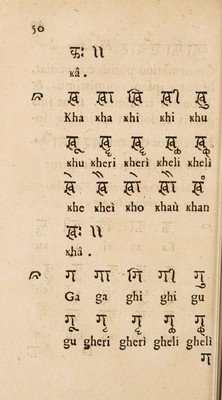 50
कः ॥
кâ .
ख खा खि खी खु
Kha кha кhi кhi кhu
खू खृ खॄ खॢ खॣ
кhu кheri кherì кheli кhelì
खे खै खो खौ खं
кhe кheì кho кhaù кhan
खः ॥
кhâ .
ग गा गि गी गु
Ga ga ghi ghi gu
गू गृ गॄ गॢ गॣ
gu gheri gherì gheli ghelì
ग